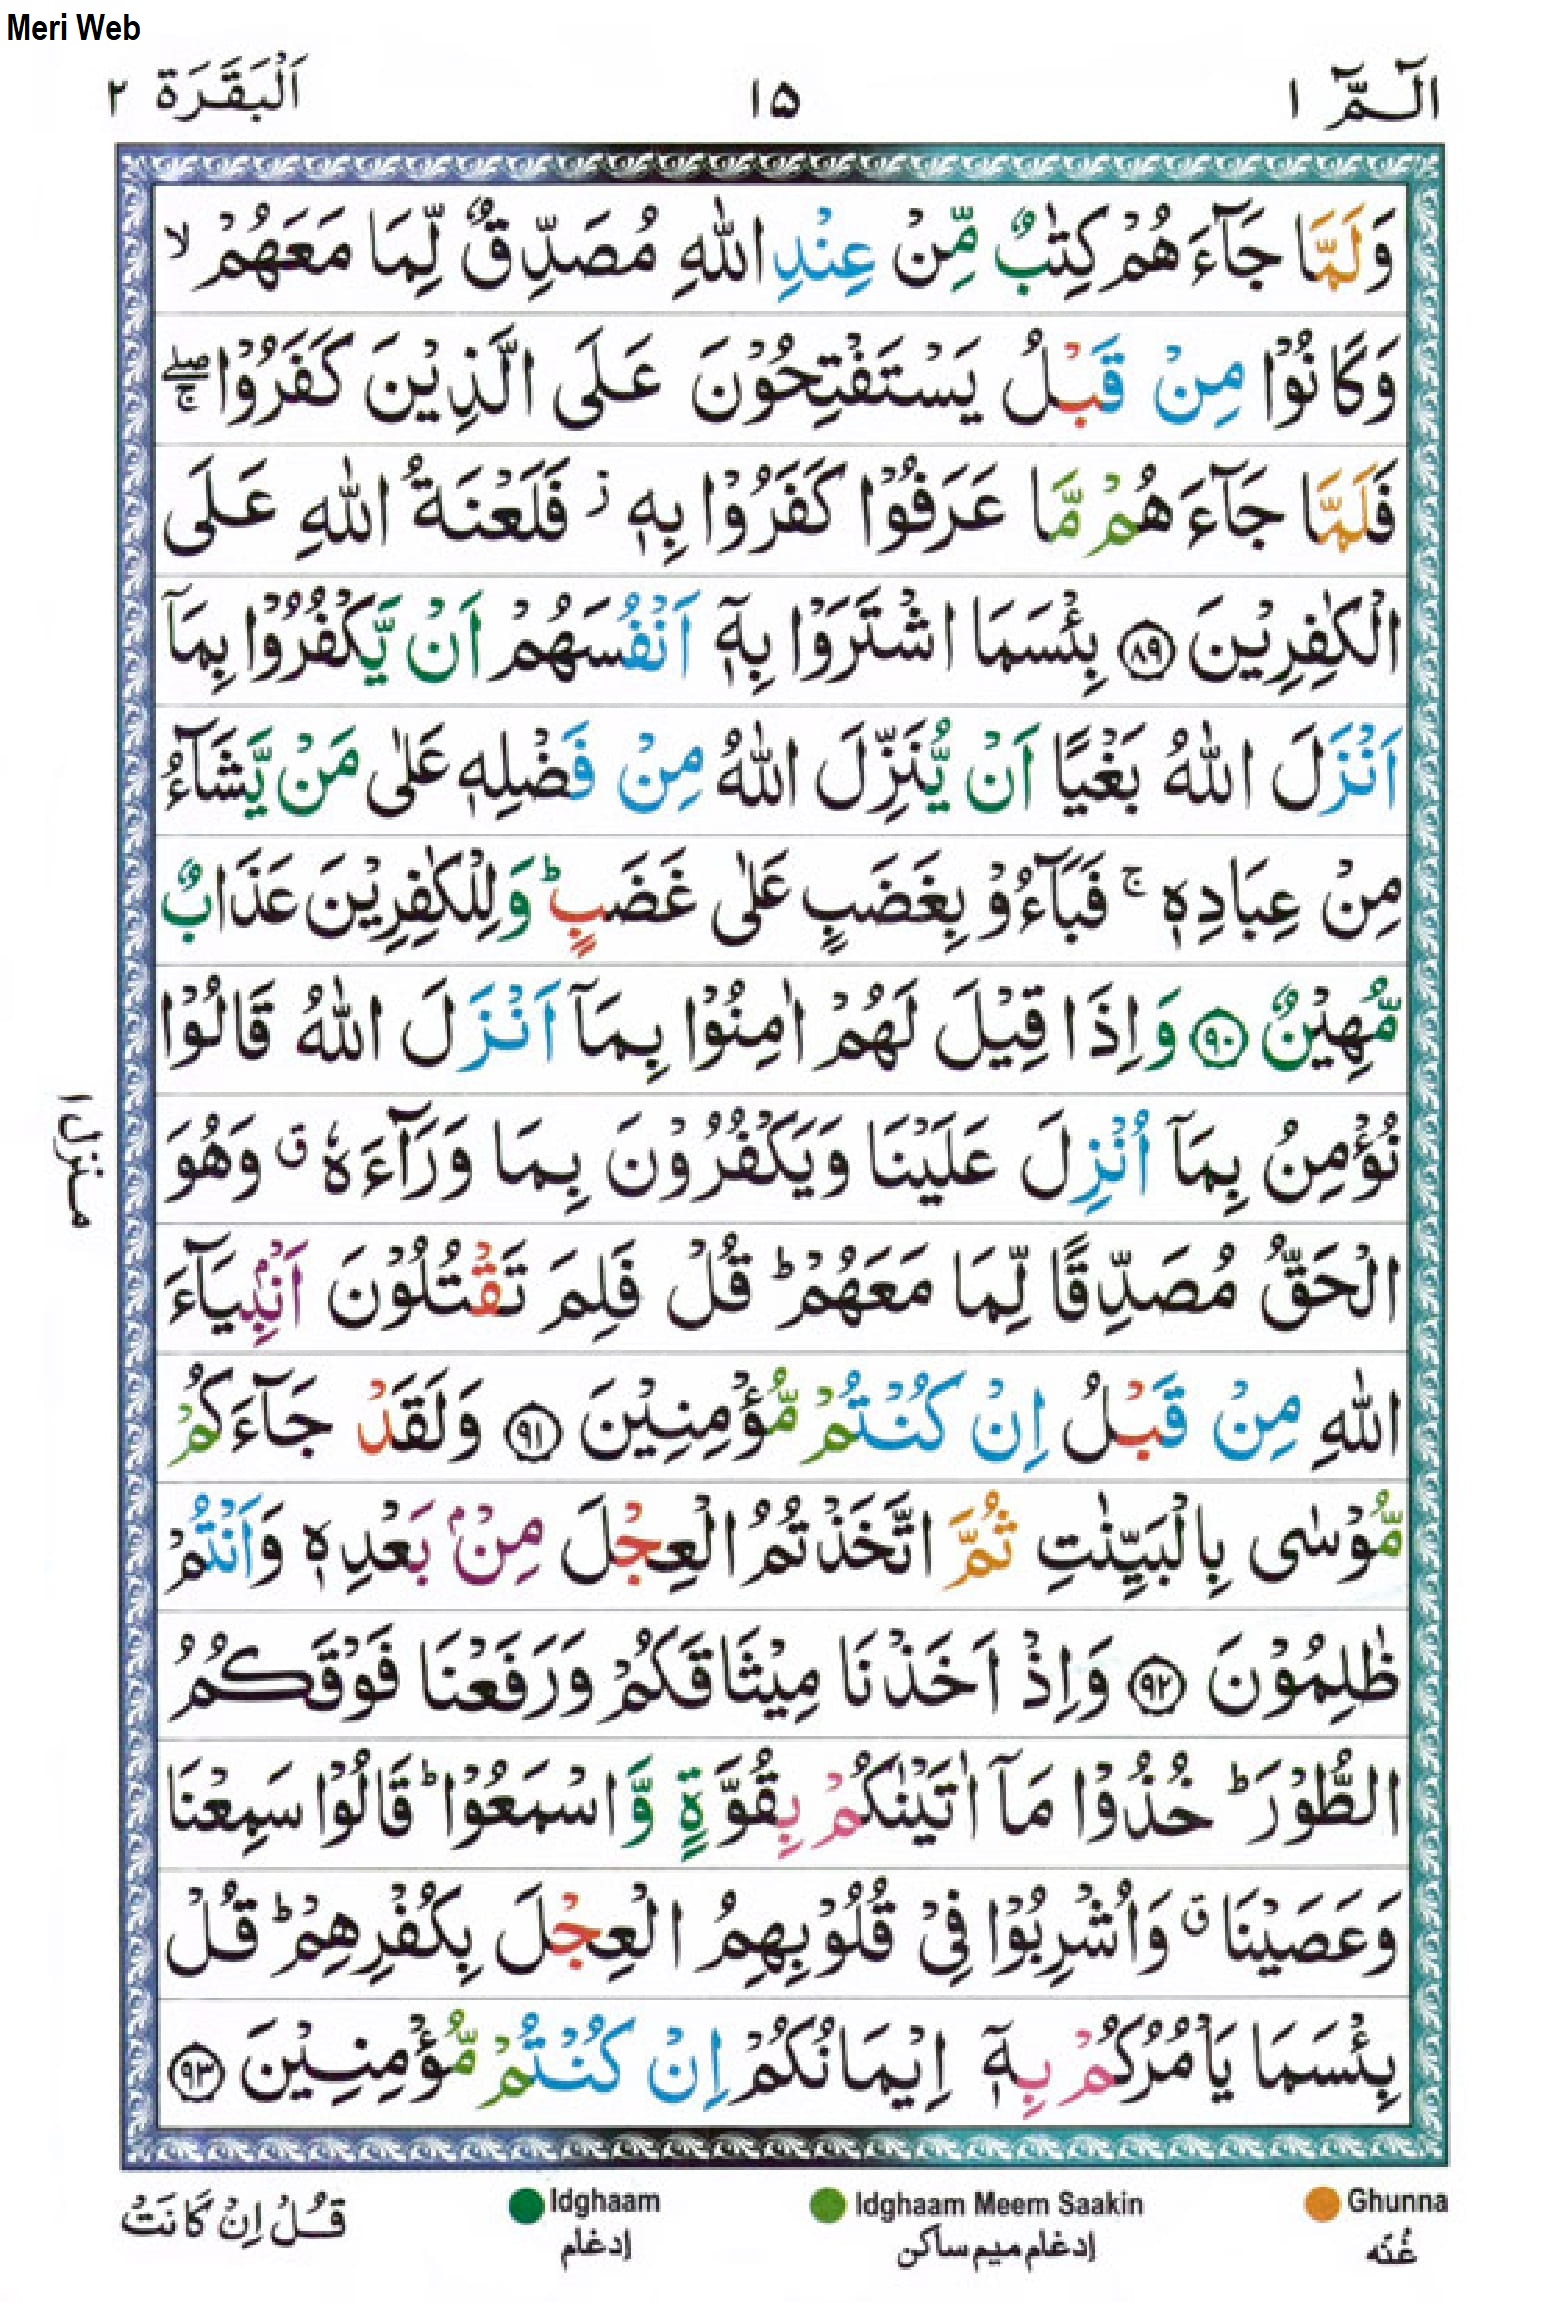 Meri Web
الٓـمّٓ ١ ١٥ اَلْبَقَرَة ٢
وَلَمَّا جَآءَهُمْ كِتٰبٌ مِّنْ عِنْدِ اللّٰهِ مُصَدِّقٌ لِّمَا مَعَهُمْ ۙ
وَكَانُوْا مِنْ قَبْلُ يَسْتَفْتِحُوْنَ عَلَى الَّذِيْنَ كَفَرُوْا ۖۚ
فَلَمَّا جَآءَهُمْ مَّا عَرَفُوْا كَفَرُوْا بِهٖ ز فَلَعْنَةُ اللّٰهِ عَلَى
الْكٰفِرِيْنَ ۝٨٩ بِئْسَمَا اشْتَرَوْا بِهٖٓ اَنْفُسَهُمْ اَنْ يَّكْفُرُوْا بِمَآ
اَنْزَلَ اللّٰهُ بَغْيًا اَنْ يُّنَزِّلَ اللّٰهُ مِنْ فَضْلِهٖ عَلٰى مَنْ يَّشَآءُ
مِنْ عِبَادِهٖ ۚ فَبَآءُوْ بِغَضَبٍ عَلٰى غَضَبٍ ؕ وَلِلْكٰفِرِيْنَ عَذَابٌ
مُّهِيْنٌ ۝٩٠ وَاِذَا قِيْلَ لَهُمْ اٰمِنُوْا بِمَآ اَنْزَلَ اللّٰهُ قَالُوْا
نُؤْمِنُ بِمَآ اُنْزِلَ عَلَيْنَا وَيَكْفُرُوْنَ بِمَا وَرَآءَهٗ ق وَهُوَ
الْحَقُّ مُصَدِّقًا لِّمَا مَعَهُمْ ؕ قُلْ فَلِمَ تَقْتُلُوْنَ اَنْۢبِيَآءَ
اللّٰهِ مِنْ قَبْلُ اِنْ كُنْتُمْ مُّؤْمِنِيْنَ ۝٩١ وَلَقَدْ جَآءَكُمْ
مُّوْسٰى بِالْبَيِّنٰتِ ثُمَّ اتَّخَذْتُمُ الْعِجْلَ مِنْۢ بَعْدِهٖ وَاَنْتُمْ
ظٰلِمُوْنَ ۝٩٢ وَاِذْ اَخَذْنَا مِيْثَاقَكُمْ وَرَفَعْنَا فَوْقَكُمُ
الطُّوْرَ ؕ خُذُوْا مَآ اٰتَيْنٰكُمْ بِقُوَّةٍ وَّاسْمَعُوْا ؕ قَالُوْا سَمِعْنَا
وَعَصَيْنَا ق وَاُشْرِبُوْا فِيْ قُلُوْبِهِمُ الْعِجْلَ بِكُفْرِهِمْ ؕ قُلْ
بِئْسَمَا يَاْمُرُكُمْ بِهٖٓ اِيْمَانُكُمْ اِنْ كُنْتُمْ مُّؤْمِنِيْنَ ۝٩٣
منزل ١
Ghunna Idghaam Meem Saakin Idghaam
غُنّه ادغام ميم ساكن ادغام قُلْ اِنْ كَانَتْ